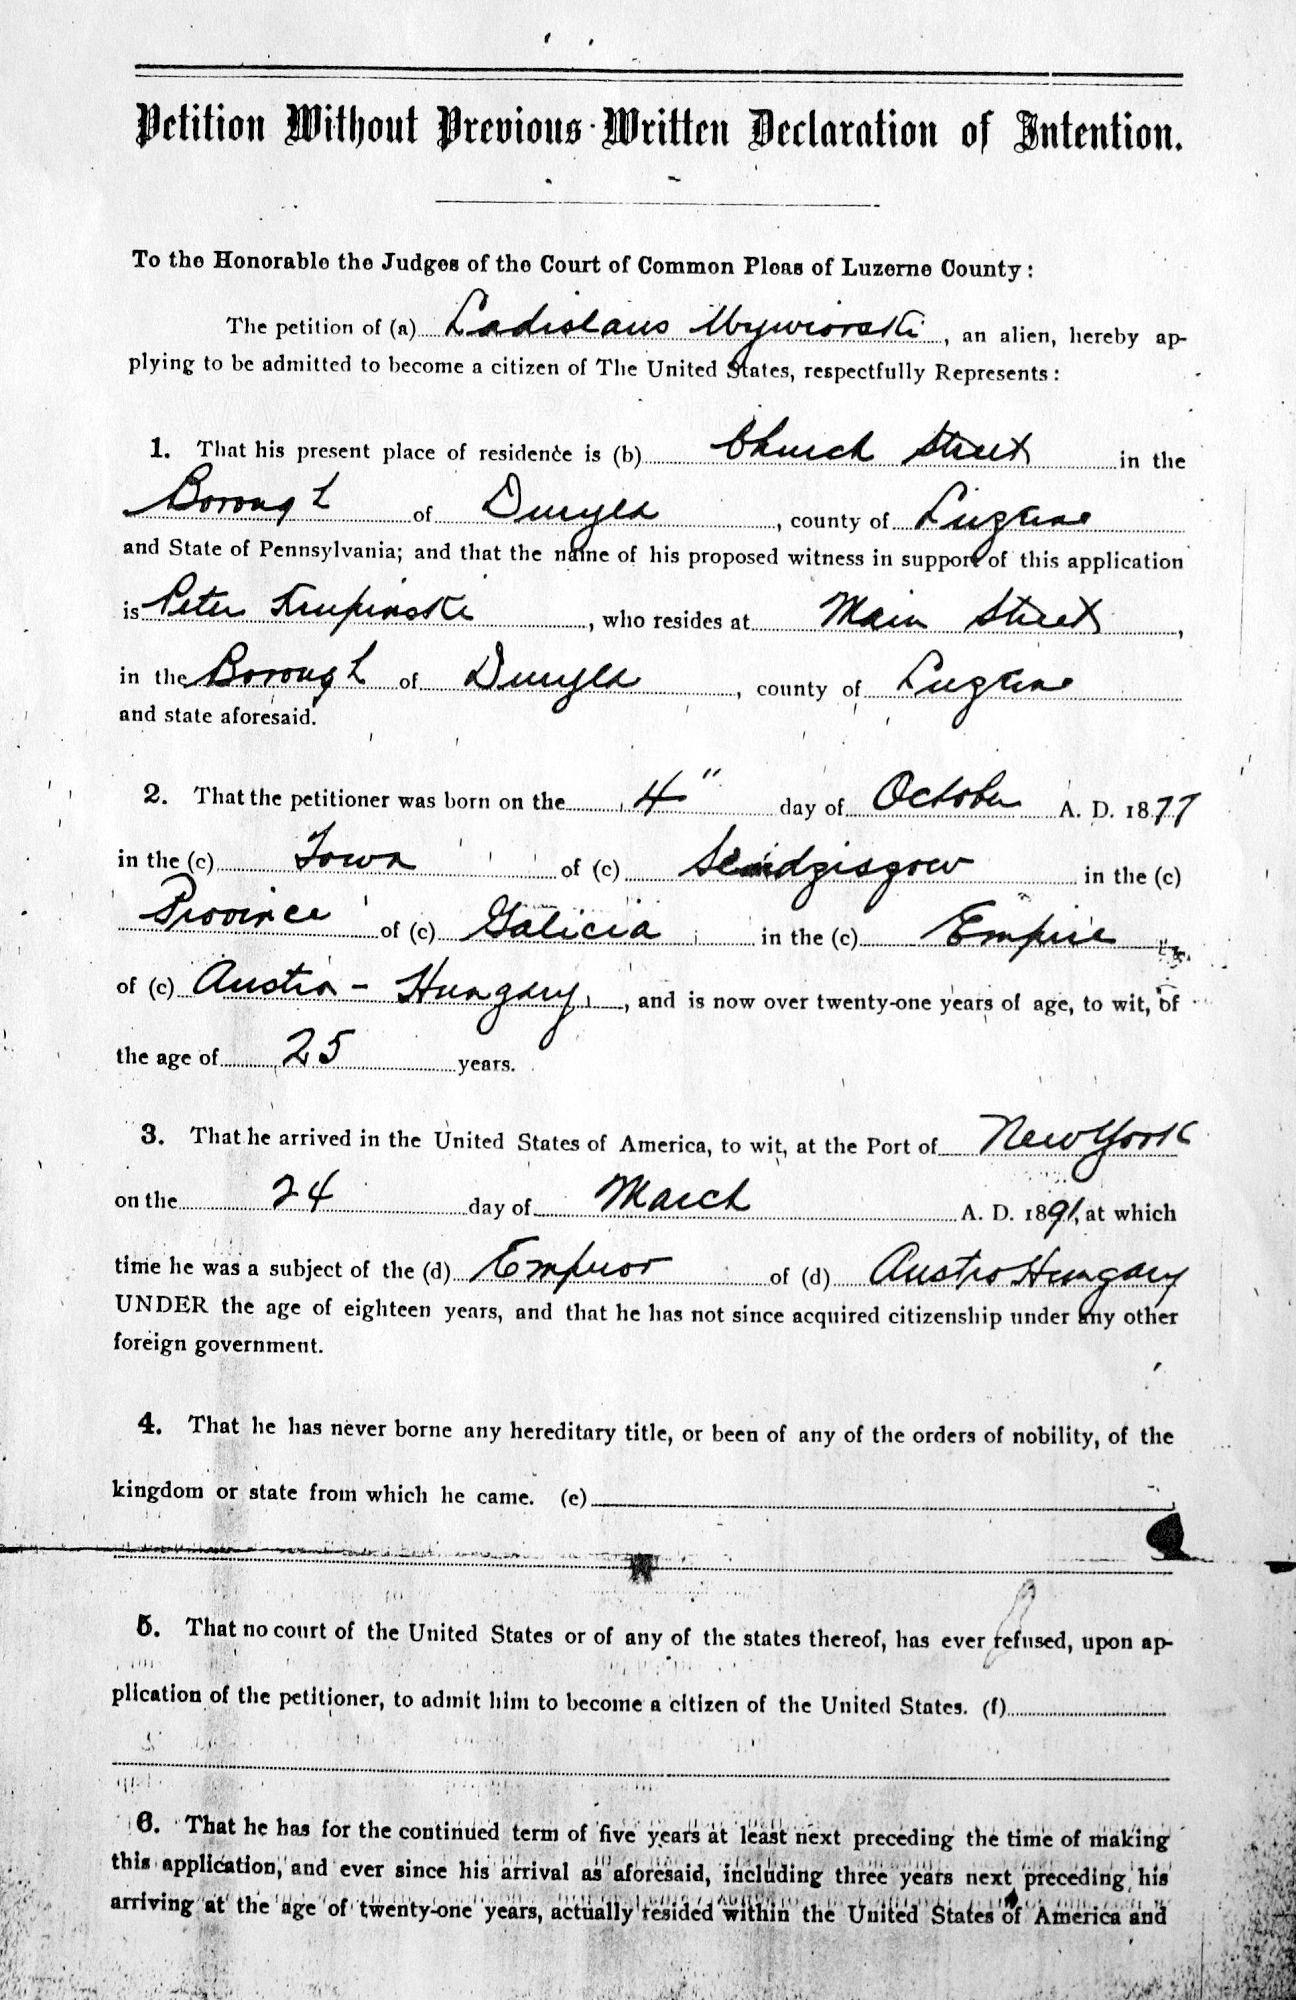 Petition Without Previous Written Declaration of Intention.
To the Honorable the Judges of the Court of Common Pleas of Luzerne County:
The petition of (a) Ladislaus Wywiorski, an alien, hereby ap-
plying to be admitted to become a citizen of The United States, respectfully Represents:
1. That his present place of residence is (b) Church Street in the
Borough of Duryea, county of Luzerne
and State of Pennsylvania; and that the name of his proposed witness in support of this application
is Peter Krupinski, who resides at Main Street,
in the Borough of Duryea, county of Luzerne
and state aforesaid.
2. That the petitioner was born on the 4" day of October A. D. 1877
in the (c) Town of (c) in the (c)
Province of (c) Galicia in the (c) Empire
of (c) Austria - Hungary, and is now over twenty-one years of age, to wit, of
the age of 25 years.
3. That he arrived in the United States of America, to wit, at the Port of New York
on the 24 day of March A. D. 1891, at which
time he was a subject of the (d) Emperor of (d) Austro Hungary
UNDER the age of eighteen years, and that he has not since acquired citizenship under any other
foreign government.
4. That he has never borne any hereditary title, or been of any of the orders of nobility, of the
kingdom or state from which he came. (e)
5. That no court of the United States or of any of the states thereof, has ever refused, upon ap-
plication of the petitioner, to admit him to become a citizen of the United States. (f)
6. That he has for the continued term of five years at least next preceding the time of making
this application, and ever since his arrival as aforesaid, including three years next preceding his
arriving at the age of twenty-one years, actually resided within the United States of America and